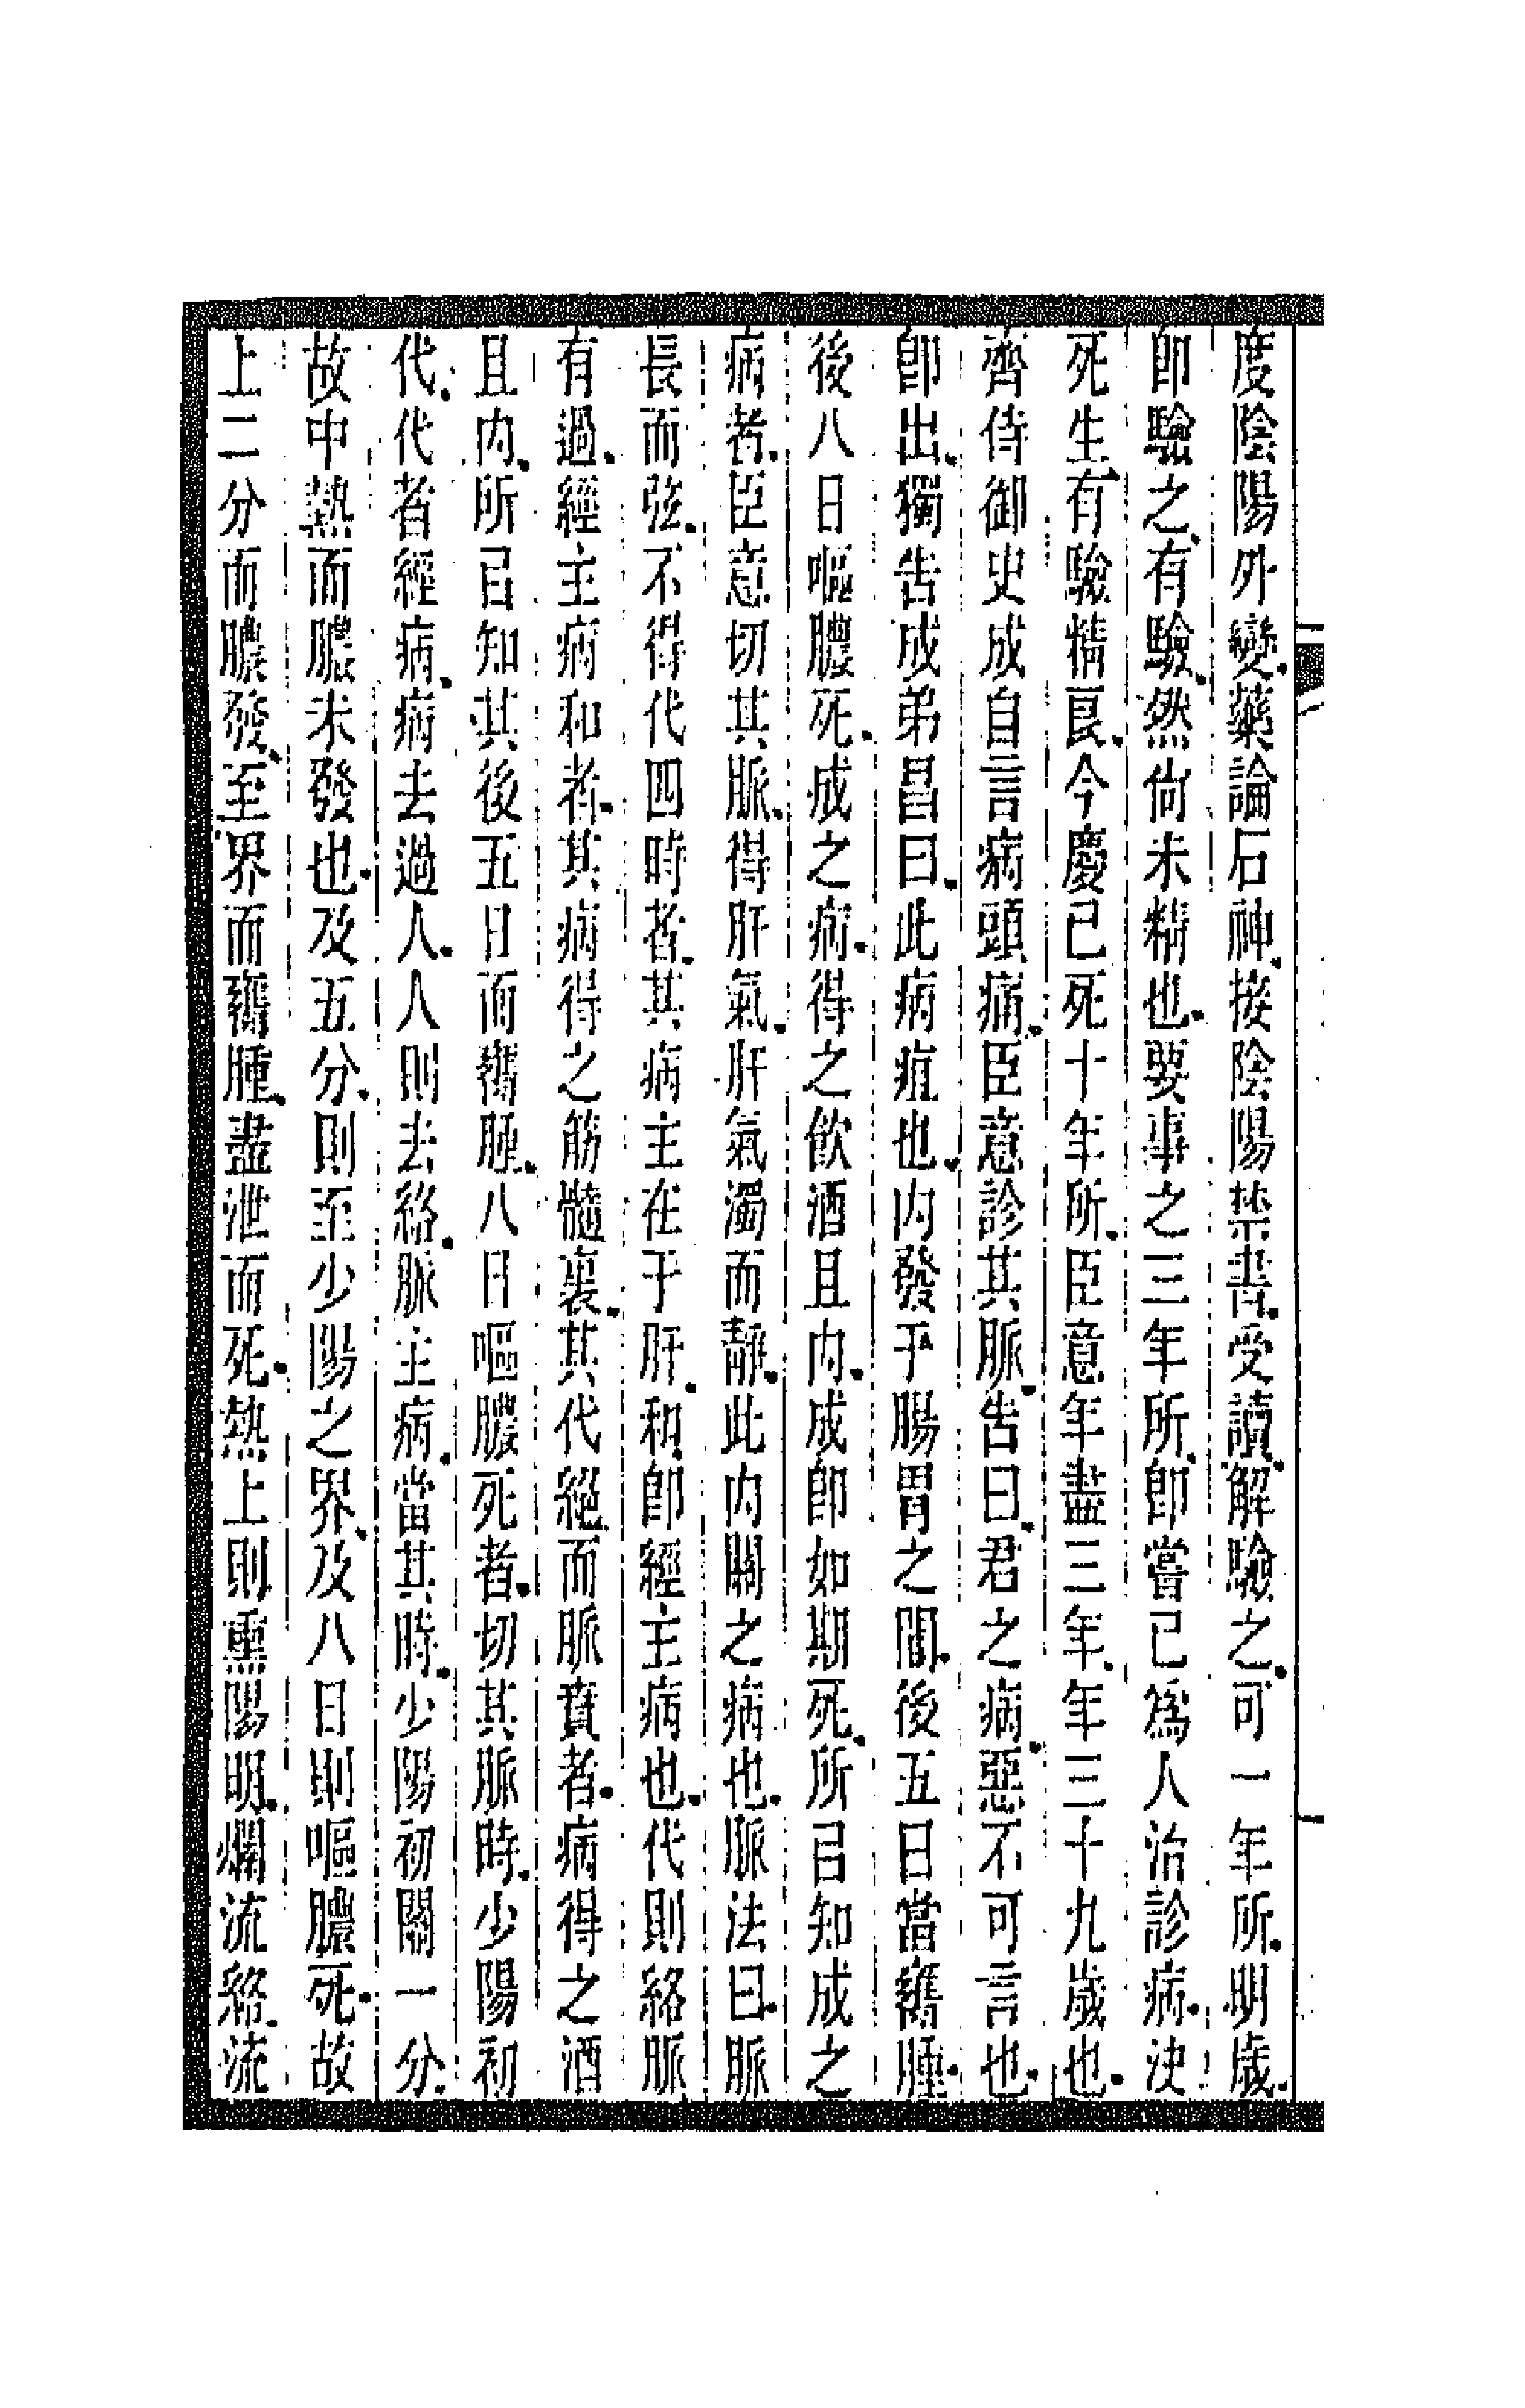 度陰陽外變藥論石神接陰陽禁書受讀解驗之可一年所明歲
卽驗之有驗然尙未精也要事之三年所卽嘗已爲人治診病決
死生有驗精良今慶已死十年所臣意年盡三年年三十九歲也
齊侍御史成自言病頭痛臣意診其脈告曰君之病惡不可言也
卽出獨告成弟昌曰此病疽也內發于腸胃之間後五日當𦡱腫
後八日嘔膿死成之病得之飲酒且內成卽如期死所㠯知成之
病者臣意切其脈得肝氣肝氣濁而靜此內關之病也脈法曰脈
長而弦不得代四時者其病主在于肝和卽經主病也代則絡脈
有過經主病和者其病得之筋髓裏其代絕而脈賁者病得之酒
且內所㠯知其後五日而𦡱腫八日嘔膿死者切其脈時少陽初
代代者經病病去過人人則去絡脈主病當其時少陽初關一分
故中熱而膿未發也及五分則至少陽之界及八日則嘔膿死故
上二分而膿發至界而𦡱腫盡泄而死熱上則熏陽明爛流絡流